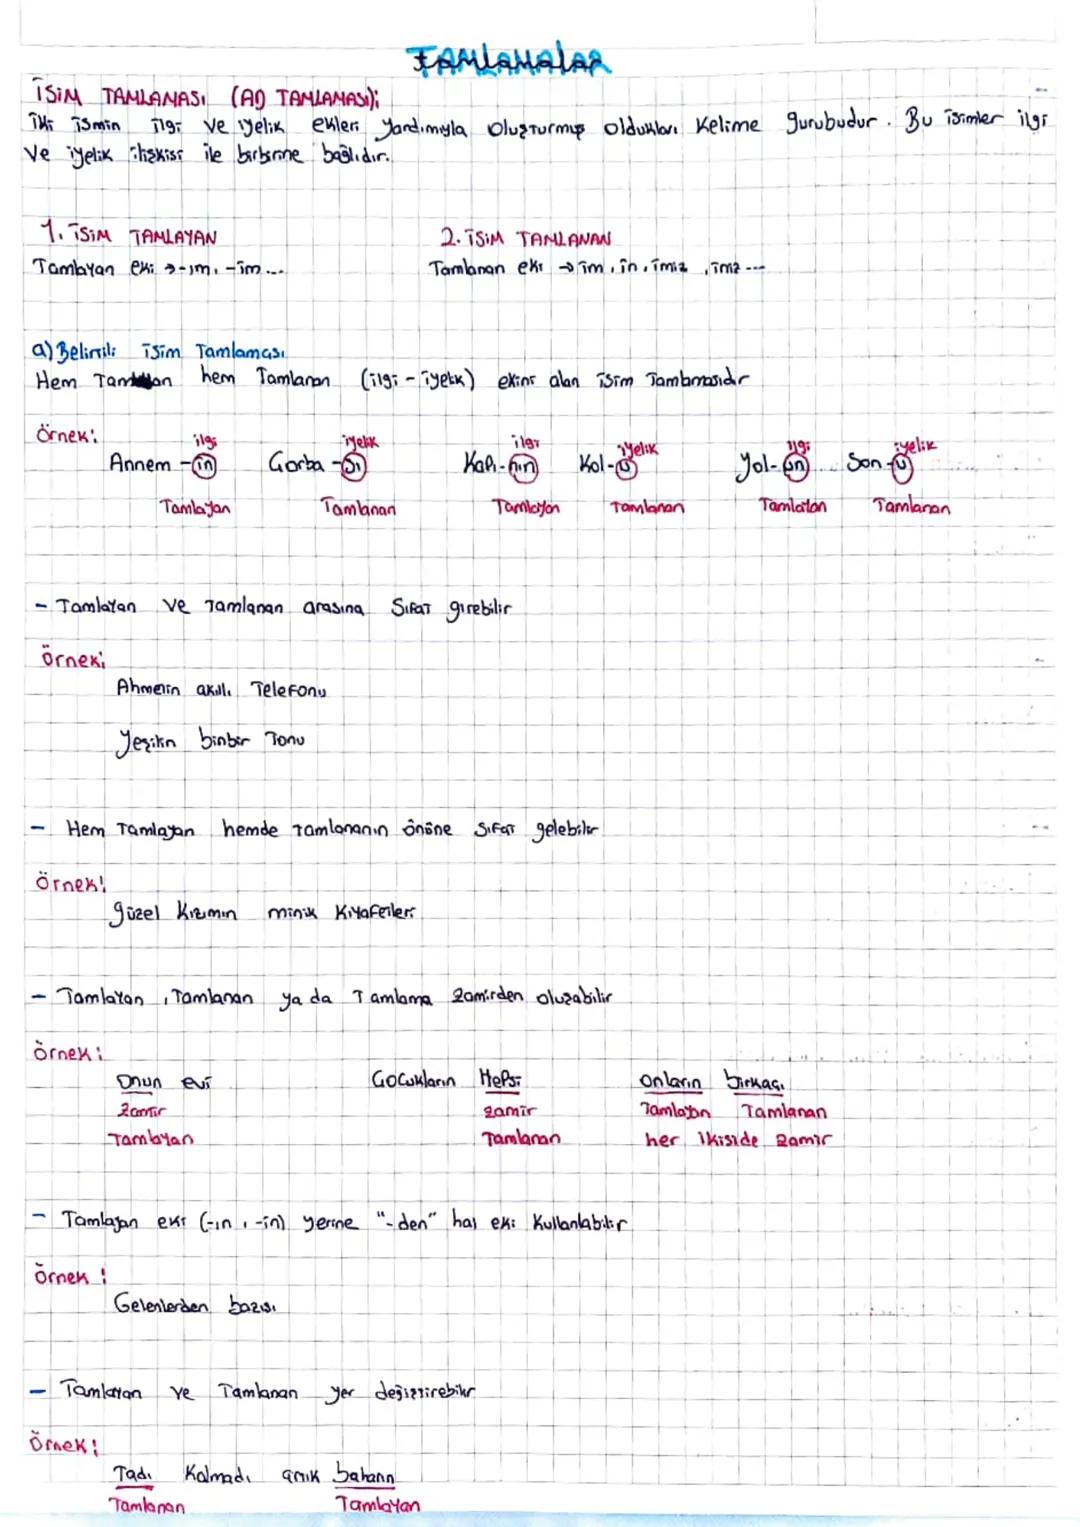 TAMLAMALAR
İSİM TAMLAMASI (AD TAMLAMASI);
İki ismin ilgi ve iyelik ekleri yardımıyla oluşturmuş oldukları kelime gurubudur. Bu isimler ilgi
ve iyelik ilişkisi ile birbirine bağlıdır.
1. İSİM TAMLAYAN 2. İSİM TAMLANAN
Tamlayan eki → -ım, -im... Tamlanan eki → im, in, imiz, ımız ---
a) Belirtili isim Tamlaması
Hem Tamlayan hem Tamlanan (ilgi - iyelik) ekini alan isim Tamlamasıdır
Örnek: ilgi iyelik ilgi iyelik ilgi iyelik
Annem -in Çorba -sı Kapı -nın Kol -u Yol -un Son -u
Tamlayan Tamlanan Tamlayan Tamlanan Tamlayan Tamlanan
- Tamlayan ve Tamlanan arasına sıfat girebilir
Örnek;
Ahmetin akıllı Telefonu
Yeşilin binbir Tonu
- Hem Tamlayan hemde tamlananın önüne sıfat gelebilir
Örnek!
güzel kızımın minik kıyafetleri
- Tamlayan, Tamlanan ya da Tamlama zamirden oluşabilir
Örnek:
Onun evi Çocukların Hepsi onların birkaçı
zamir zamir Tamlayan Tamlanan
Tamlayan Tamlanan her ikiside zamir
- Tamlayan eki (-ın, -in) yerine "-den" hal eki kullanılabilir
Örnek:
Gelenlerden bazısı
- Tamlayan ve Tamlanan yer değiştirebilir
Örnek:
Tadı kalmadı artık baharın
Tamlanan Tamlayan